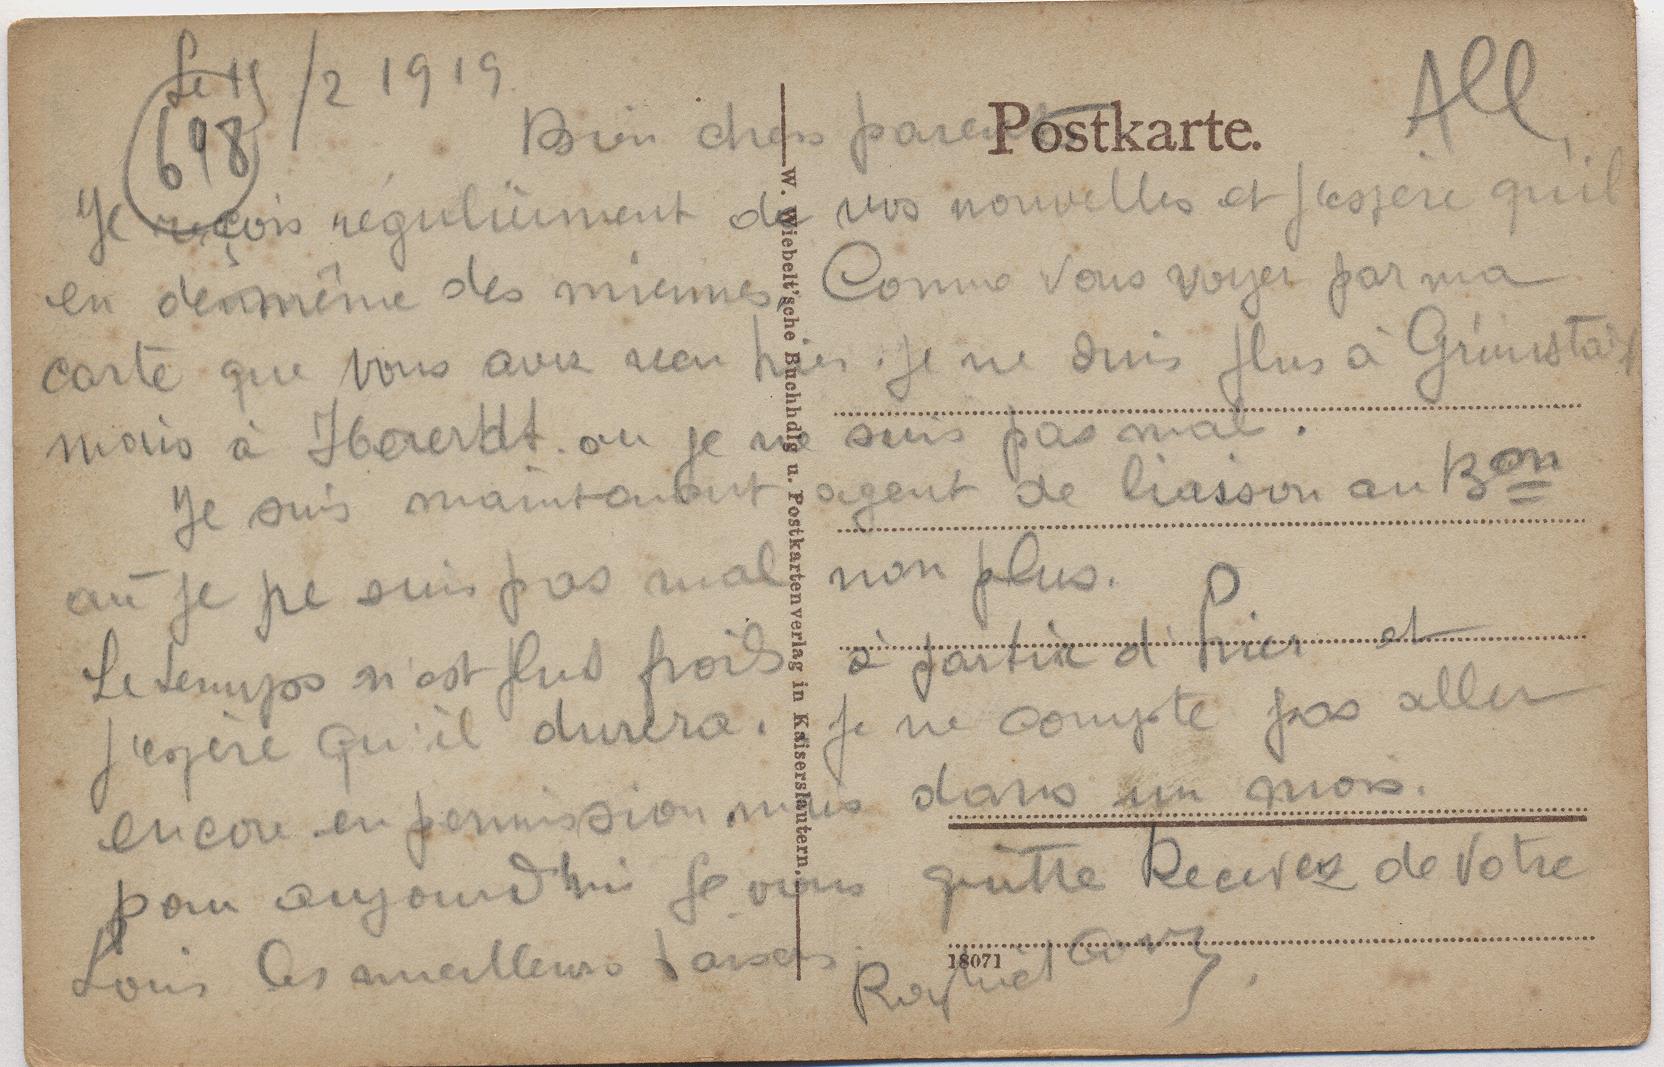 Le 15/2 1919
698
All
Postkarte.
Bien chers parents
Je reçois régulièrement de vos nouvelles et j'espère qu'il
en de même des miennes. Comme vous voyer par ma
carte que vous avez reçu hier. je ne suis plus à
mais à ou je ne suis pas mal.
Je suis maintenant agent de liaison au Bon
ou je ne suis pas mal non plus.
Le temps n'est plus froid à partir d'hier et
j'espère qu'il durera. je ne compte pas aller
encore en permission mais dans un mois.
pour aujourd'hui je vous quitte Recevez de votre
Louis les meilleurs baisers.
W. Wiebelt'sche Buchhdlg u. Postkartenverlag in Kaiserslautern.
18071